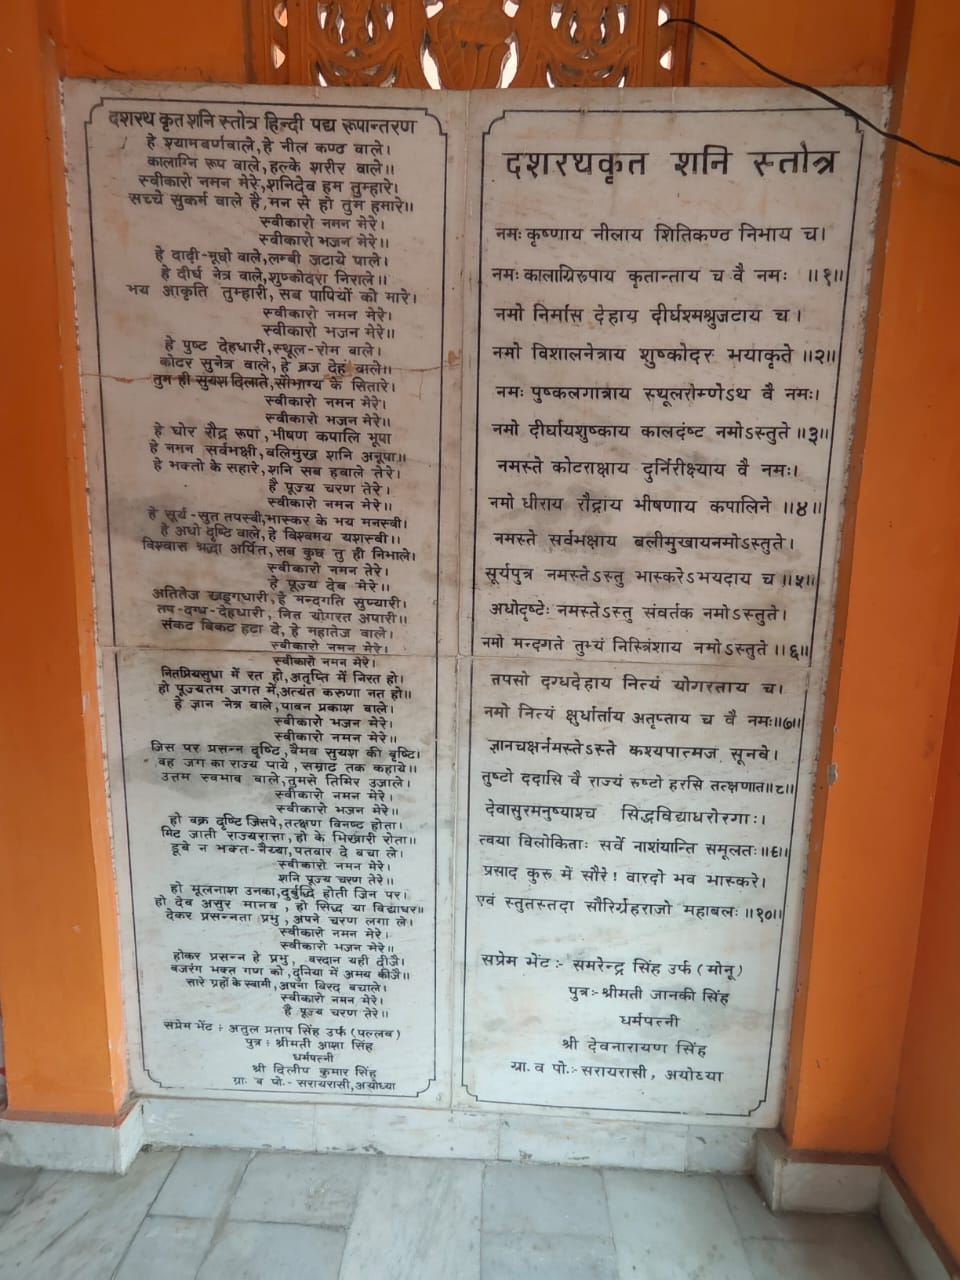 दशरथ कृत शनि स्तोत्र हिन्दी पद्य रूपान्तरण
हे श्यामवर्णवाले, हे नील कण्ठ वाले।
कालाग्नि रूप वाले, हल्के शरीर वाले॥
स्वीकारो नमन मेरे, शनिदेव हम तुम्हारे।
सच्चे सुकर्म वाले है, मन से हो तुम हमारे॥
स्वीकारो नमन मेरे।
स्वीकारो भजन मेरे॥
हे दाढ़ी-मूछो वाले, लम्बी जटाये पाले।
हे दीर्घ नेत्र वाले, शुष्कोदरा निराले॥
भय आकृति तुम्हारी, सब पापियों को मारे।
स्वीकारो नमन मेरे।
स्वीकारो भजन मेरे॥
हे पुष्ट देहधारी, स्थूल-रोम वाले।
कोटर सुनेत्र वाले, हे ब्रज देह वाले॥
तुम ही सुयश दिलाते, सौभाग्य के सितारे।
स्वीकारो नमन मेरे।
स्वीकारो भजन मेरे॥
हे घोर रौद्र रूपा, भीषण कपालि भूपा
हे नमन सर्वभक्षी, बलिमुख शनि अनूपा॥
हे भक्तो के सहारे, शनि सब हवाले तेरे।
है पूज्य चरण तेरे।
स्वीकारो नमन मेरे॥
हे सूर्य-सुत तपस्वी, भास्कर के भय मनस्वी।
हे अधो दृष्टि वाले, हे विश्वमय यशस्वी॥
विश्वास श्रद्धा अर्पित, सब कुछ तु ही निभाले।
स्वीकारो नमन तेरे।
हे पूज्य देव मेरे॥
अतितेज खड्गधारी, हे मन्दगति सुप्यारी।
तप-दग्ध-देहधारी, नित योगरत अपारी॥
संकट विकट हटा दे, हे महातेज वाले।
स्वीकारो नमन मेरे।
स्वीकारो नमन मेरे।
नितप्रियसुधा में रत हो, अतृप्ति में निरत हो।
हो पूज्यतम जगत में, अत्यंत करुणा नत हो॥
हे ज्ञान नेत्र वाले, पावन प्रकाश वाले।
स्वीकारो भजन मेरे।
स्वीकारो नमन मेरे॥
जिस पर प्रसन्न दृष्टि, वैभव सुयश की वृष्टि।
वह जग का राज्य पाये, सम्राट तक कहाये॥
उत्तम स्वभाव वाले, तुमसे तिमिर उजाले।
स्वीकारो नमन मेरे।
स्वीकारो भजन मेरे॥
हो वक्र दृष्टि जिसपे, तत्क्षण विनष्ट होता।
मिट जाती राज्यसत्ता, हो के भिखारी रोता॥
डूबे न भक्त-नैय्या, पतवार दे बचा ले।
स्वीकारो नमन मेरे।
शनि पूज्य चरण तेरे॥
हो मूलनाश उनका, दुर्बुद्धि होती जिन पर।
हो देव असुर मानव, हो सिद्ध या विद्याधर॥
देकर प्रसन्नता प्रभु, अपने चरण लगा ले।
स्वीकारो नमन मेरे।
स्वीकारो भजन मेरे॥
होकर प्रसन्न हे प्रभु, वरदान यही दीजै।
बजरंग भक्त गण को, दुनिया में अभय कीजै॥
सारे ग्रहों के स्वामी, अपना विरद बचाले।
स्वीकारो नमन मेरे।
है पूज्य चरण तेरे॥
सप्रेम भेंट : अतुल प्रताप सिंह उर्फ (पल्लव)
पुत्र : श्रीमती आशा सिंह
धर्मपत्नी
श्री दिलीप कुमार सिंह
ग्रा. व पो.- सरायरासी, अयोध्या
दशरथकृत शनि स्तोत्र
नमः कृष्णाय नीलाय शितिकण्ठ निभाय च।
नमः कालाग्निरूपाय कृतान्ताय च वै नमः ॥१॥
नमो निर्मास देहाय दीर्घश्मश्रुजटाय च।
नमो विशालनेत्राय शुष्कोदर भयाकृते ॥२॥
नमः पुष्कलगात्राय स्थूलरोम्णेऽथ वै नमः।
नमो दीर्घायशुष्काय कालदंष्ट नमोऽस्तुते ॥३॥
नमस्ते कोटराक्षाय दुर्निरीक्ष्याय वै नमः।
नमो धीराय रौद्राय भीषणाय कपालिने ॥४॥
नमस्ते सर्वभक्षाय बलीमुखायनमोऽस्तुते।
सूर्यपुत्र नमस्तेऽस्तु भास्करेऽभयदाय च ॥५॥
अधोदृष्टेः नमस्तेऽस्तु संवर्तक नमोऽस्तुते।
नमो मन्दगते तुभ्यं निस्त्रिंशाय नमोऽस्तुते ॥६॥
तपसो दग्धदेहाय नित्यं योगरताय च।
नमो नित्यं क्षुर्धार्त्ताय अतृप्ताय च वै नमः॥७॥
ज्ञानचक्षर्नमस्तेऽस्ते कश्यपात्मज सूनवे।
तुष्टो ददासि वै राज्यं रुष्टो हरसि तत्क्षणात॥८॥
देवासुरमनुष्याश्च सिद्धविद्याधरोरगाः।
त्वया विलोकिताः सर्वे नाशंयान्ति समूलतः॥९॥
प्रसाद कुरु में सौरे! वारदो भव भास्करे।
एवं स्तुतस्तदा सौरिर्ग्रहराजो महाबलः ॥१०॥
सप्रेम भेंट :- समरेन्द्र सिंह उर्फ (मोनू)
पुत्र:- श्रीमती जानकी सिंह
धर्मपत्नी
श्री देवनारायण सिंह
ग्रा. व पो:- सरायरासी, अयोध्या